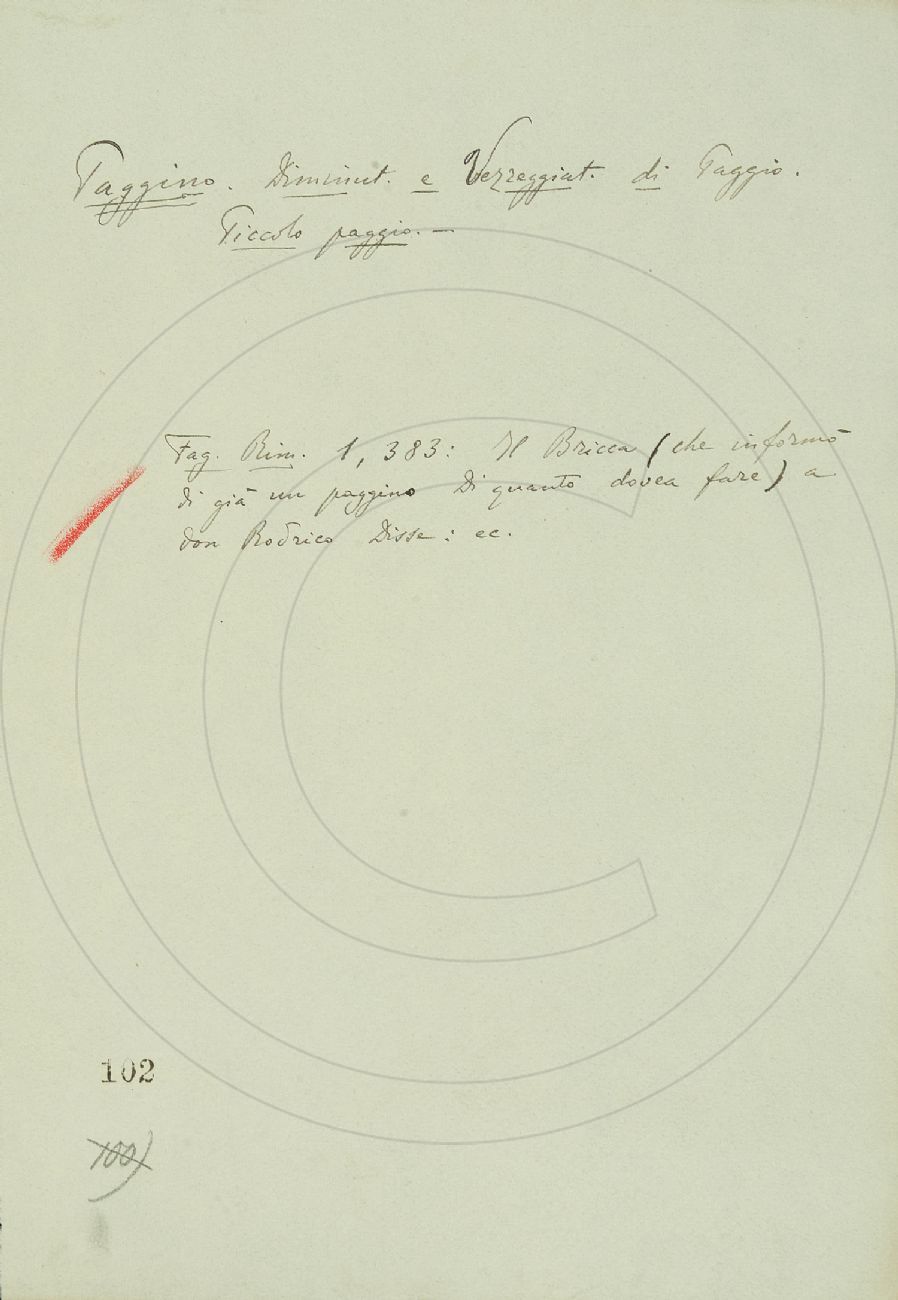 Paggino. Diminut. e Vezzeggiat. di Paggio.
Piccolo paggio. —
Fag. Rim. 1, 383: Il Bricca (che informò
di già un paggino di quanto dovea fare) a
don Rodrico disse: ec.
102
100)